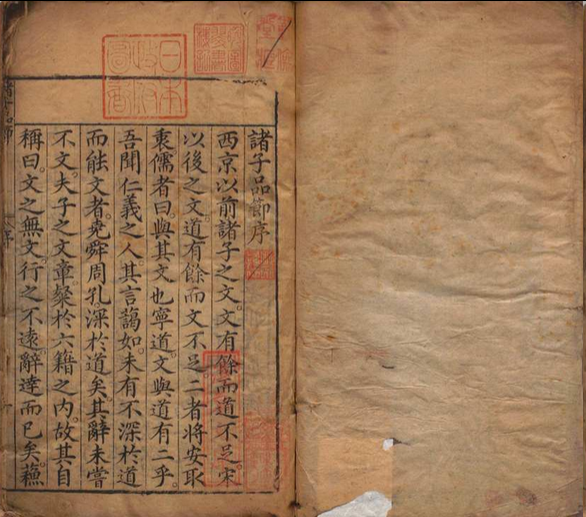 諸子品節序
西京以前諸子之文。文有餘而道不足。宋
以後之文。道有餘而文不足。二者將安取
衷。儒者曰。與其文也寧道。文與道有二乎。
吾聞仁義之人。其言藹如。未有不深於道
而能文者。堯舜周孔深於道矣。其辭未嘗
不文。夫子之文章。粲於六籍之內。故其自
稱曰。文之無文。行之不遠。辭達而已矣。蘓
序
日本